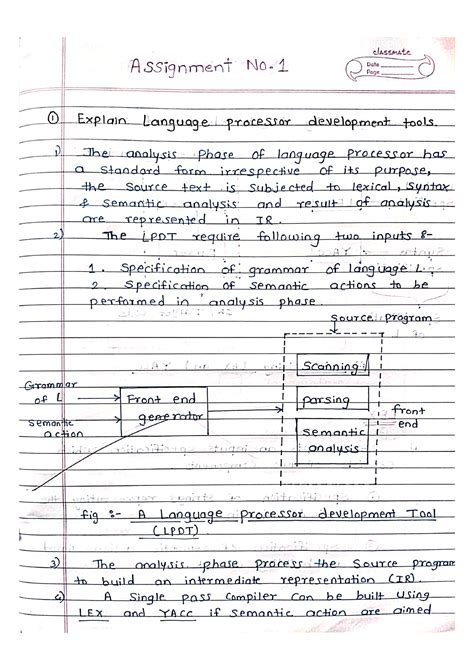 classmate
Date
Page
Assignment No. 1
① Explain Language processor development tools.
1) The analysis phase of language processor has
a standard form irrespective of its purpose,
the Source text is subjected to lexical, Syntax
& Semantic analysis and result of analysis
are represented in IR.
2) The LPDT require following two inputs :-
1. Specification of grammar of language L.
2. Specification of semantic actions to be
performed in analysis phase.
Source program
Scanning
Grammar
of L
Front end
generator
parsing
front
end
Semantic
action
Semantic
analysis
fig :- A Language processor development Tool
(LPDT)
3) The analysis phase process the Source program
to build an intermediate representation (IR).
4) A Single pass Compiler can be built Using
LEX and YACC if Semantic action are aimed